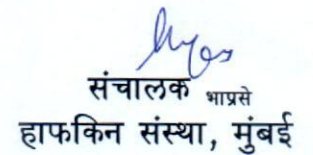 संचालक भाप्रसे
हाफकिन संस्था, मुंबई